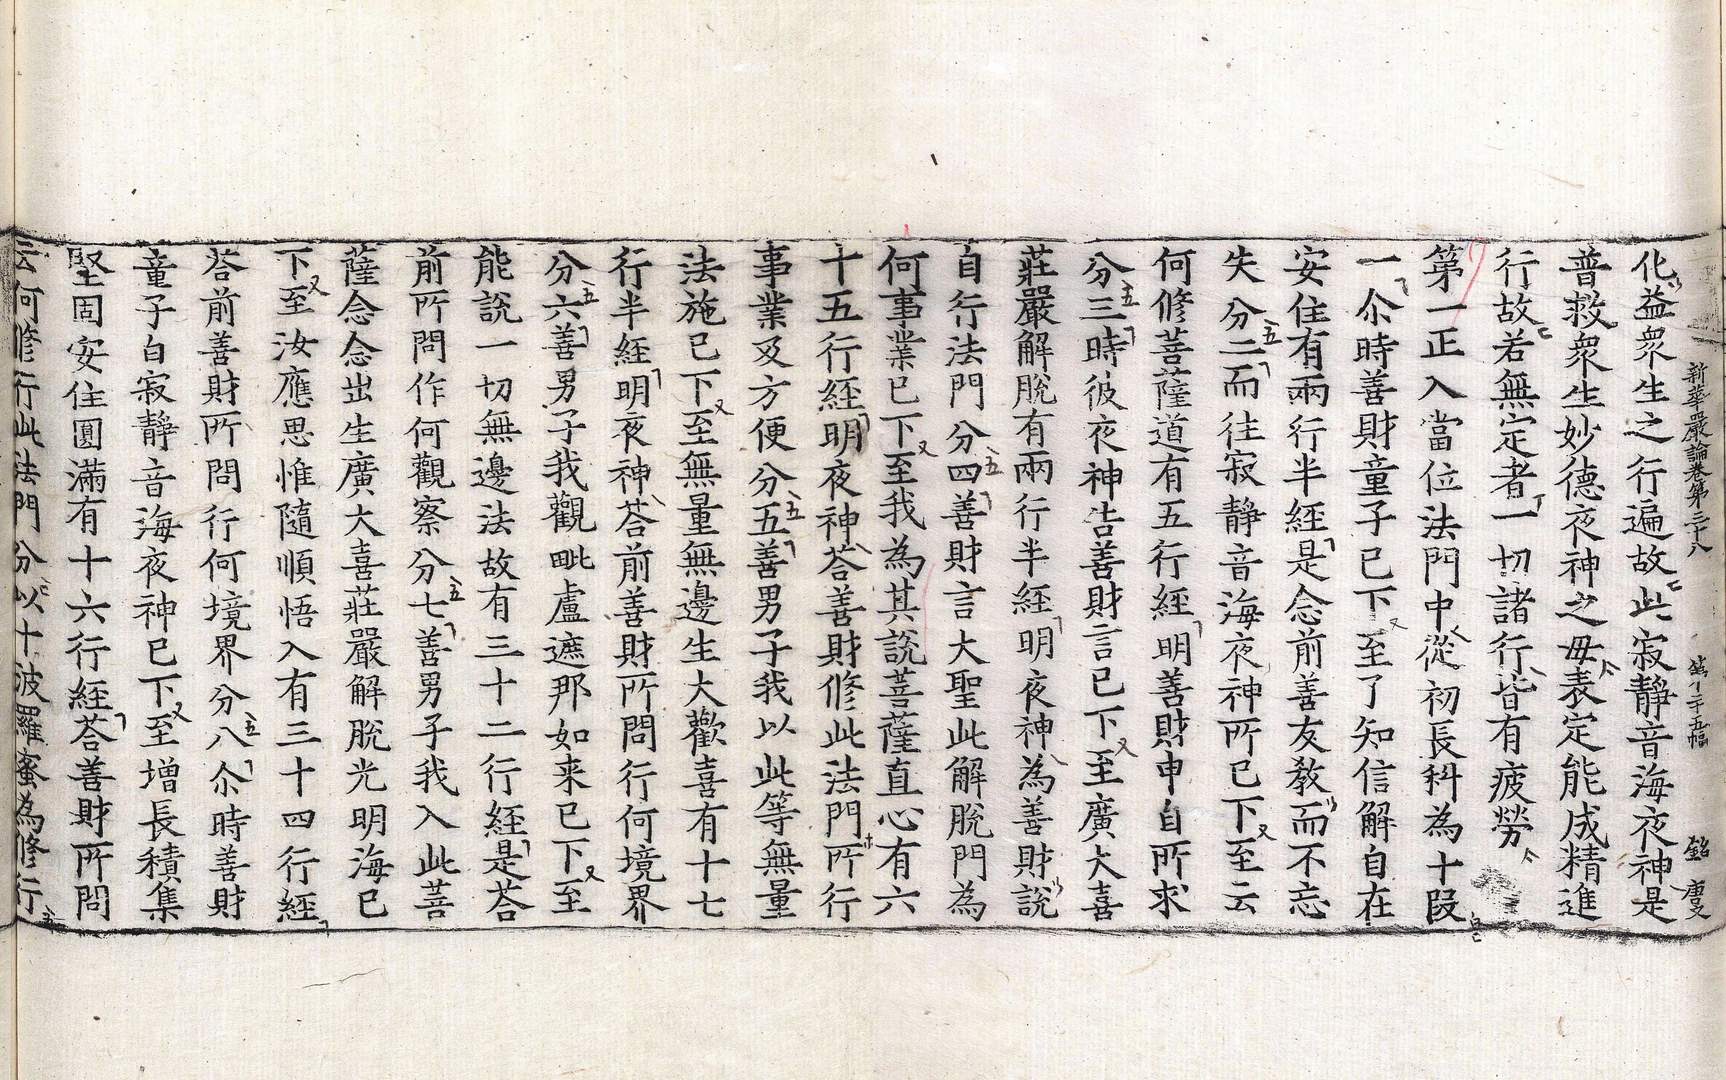 新華嚴論卷第三十八 銘 唐文
化益衆生之行遍故此寂靜音海夜神是
普救衆生妙德夜神之母表定能成精進
行故若無定者一切諸行皆有疲勞
第一正入當位法門中從初長科為十段
一尒時善財童子已下至了知信解自在
安住有兩行半經是念前善友教而不忘
失分二而往寂靜音海夜神所已下至云
何修菩薩道有五行經明善財申自所求
分三時彼夜神告善財言已下至廣大喜
莊嚴解脫有兩行半經明夜神為善財說
自行法門分四善財言大聖此解脫門為
何事業已下至我為其說菩薩直心有六
十五行經明夜神荅善財修此法門所行
事業及方便分五善男子我以此等無量
法施已下至無量無邊生大歡喜有十七
行半經明夜神荅前善財所問行何境界
分六善男子我觀毗盧遮那如来已下至
能說一切無邊法故有三十二行經是荅
前所問作何觀察分七善男子我入此菩
薩念念出生廣大喜莊嚴解脫光明海已
下至汝應思惟隨順悟入有三十四行經
荅前善財所問行何境界分八尒時善財
童子白寂靜音海夜神已下至增長積集
堅固安住圓滿有十六行經荅善財所問
云何修行此法門分以十波羅蜜為修行